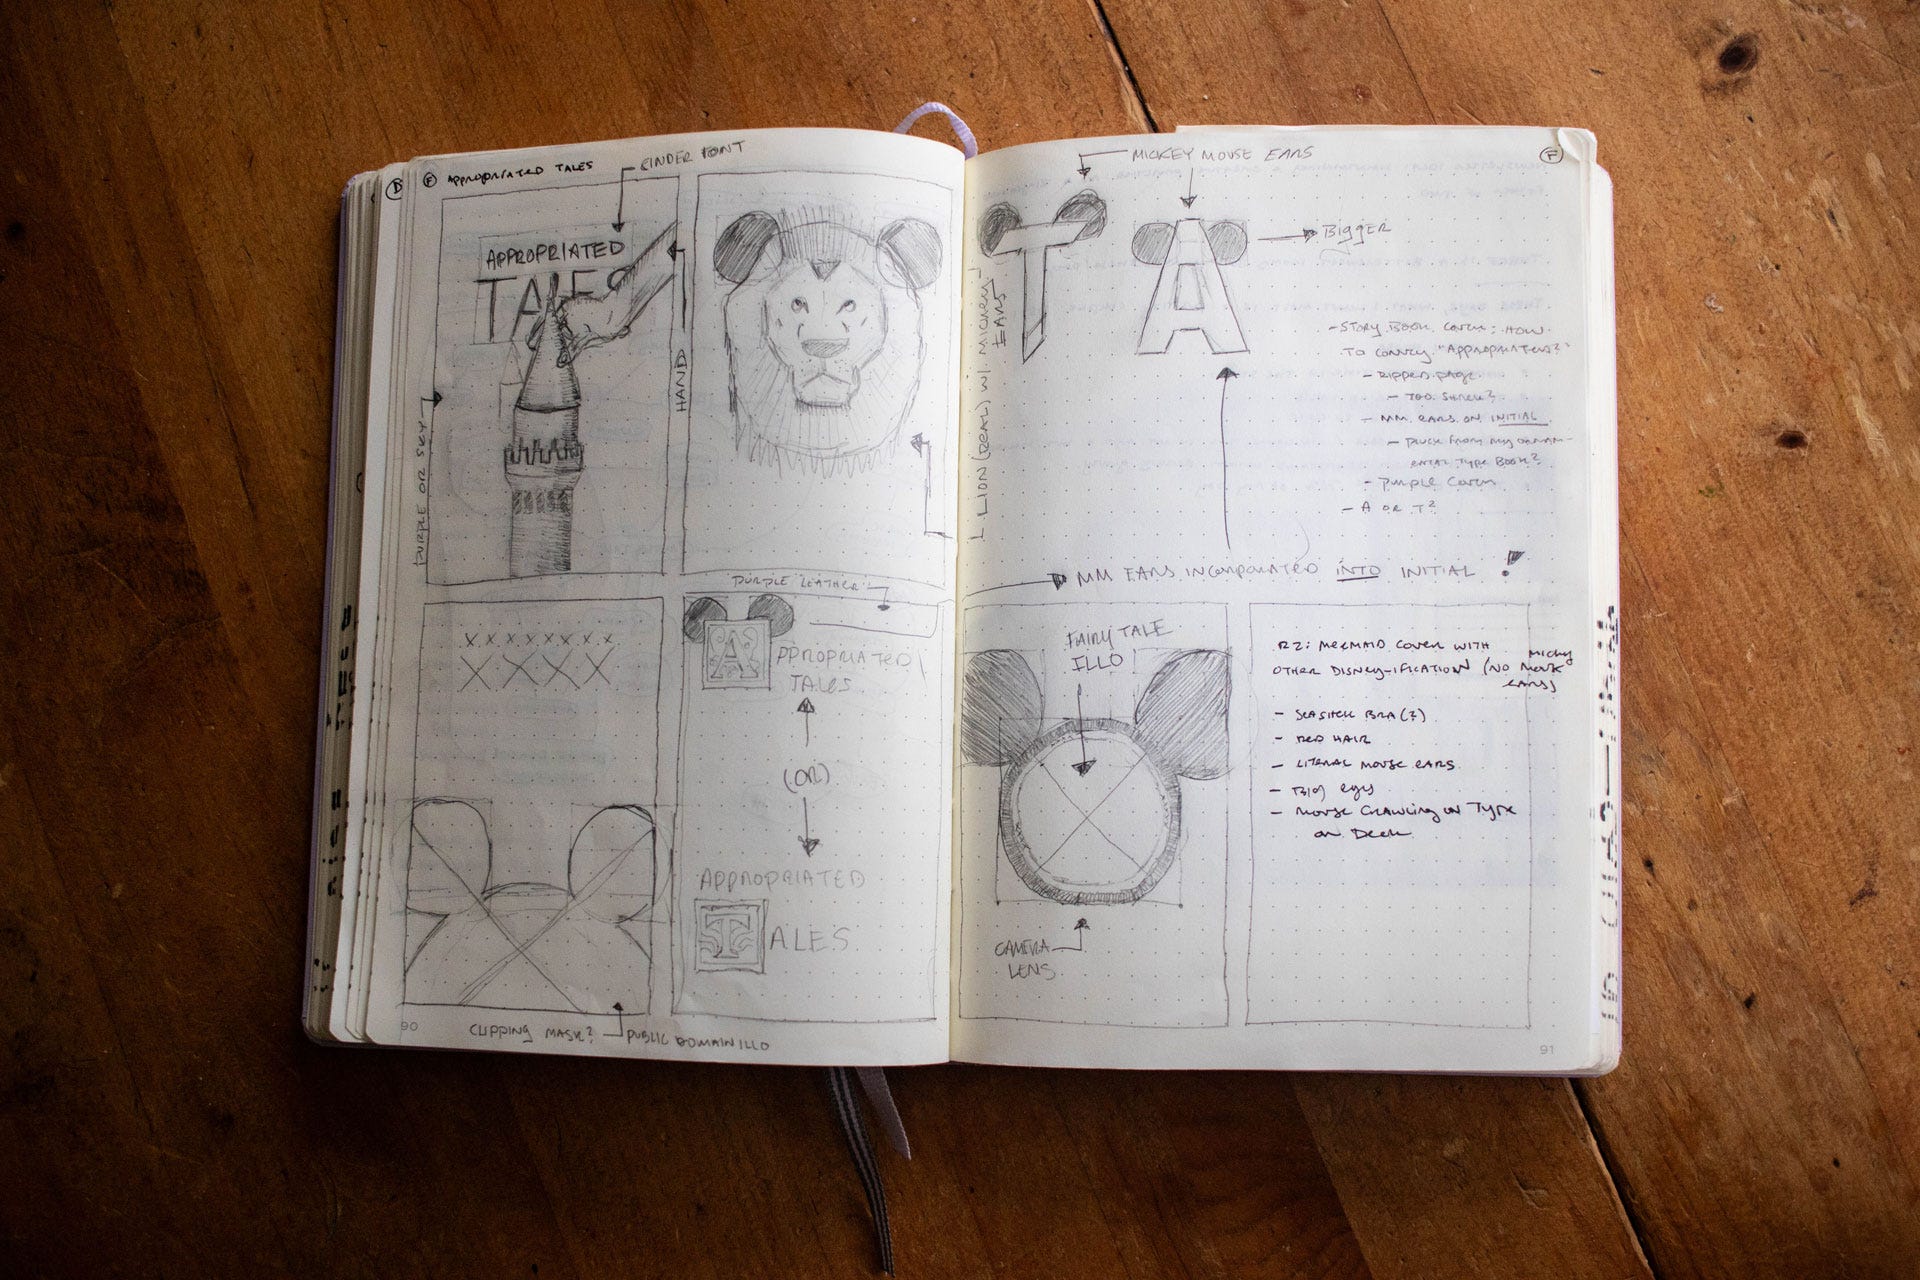 D
F APPROPRIATED TALES
CINDER FONT
APPROPRIATED
TALES
HAND
PURPLE OR SKY
LION (REAL) W/ MICKEY
EARS
PURPLE "LEATHER"
X X X X X X X X
X X X X
A
PPROPRIATED
TALES
(OR)
APPROPRIATED
T ALES
90
CLIPPING MASK?
PUBLIC DOMAIN ILLO
MICKEY MOUSE EARS
F
T A
BIGGER
- STORY BOOK COVER: HOW
TO CONVEY "APPROPRIATED?"
- RIPPED PAGE
- TOO SHREK?
- MM EARS ON INITIAL
- PLUCK FROM MY ORNAM-
ENTAL TYPE BOOK?
- PURPLE COVER
- A OR T?
MM EARS INCORPORATED INTO INITIAL !
FAIRY TALE
ILLO
CAMERA
LENS
R2: MERMAID COVER WITH
OTHER DISNEY-IFICATION (NO MICKEY MOUSE
EARS)
- SEASHELL BRA (?)
- RED HAIR
- LITERAL MOUSE EARS
- BIG EYES
- MOUSE CRAWLING ON TYPE
OR DECK
91